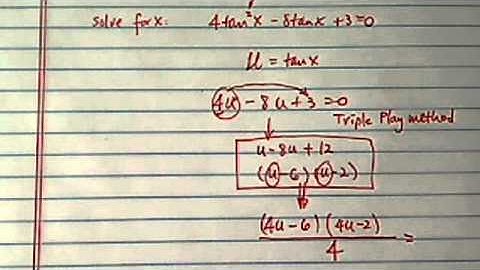 solve for x: 4tan²x - 8tanx + 3 = 0
u = tanx
4u - 8u + 3 = 0
Triple Play method
u - 8u + 12
(u - 6)(u - 2)
(4u - 6)(4u - 2) =
4